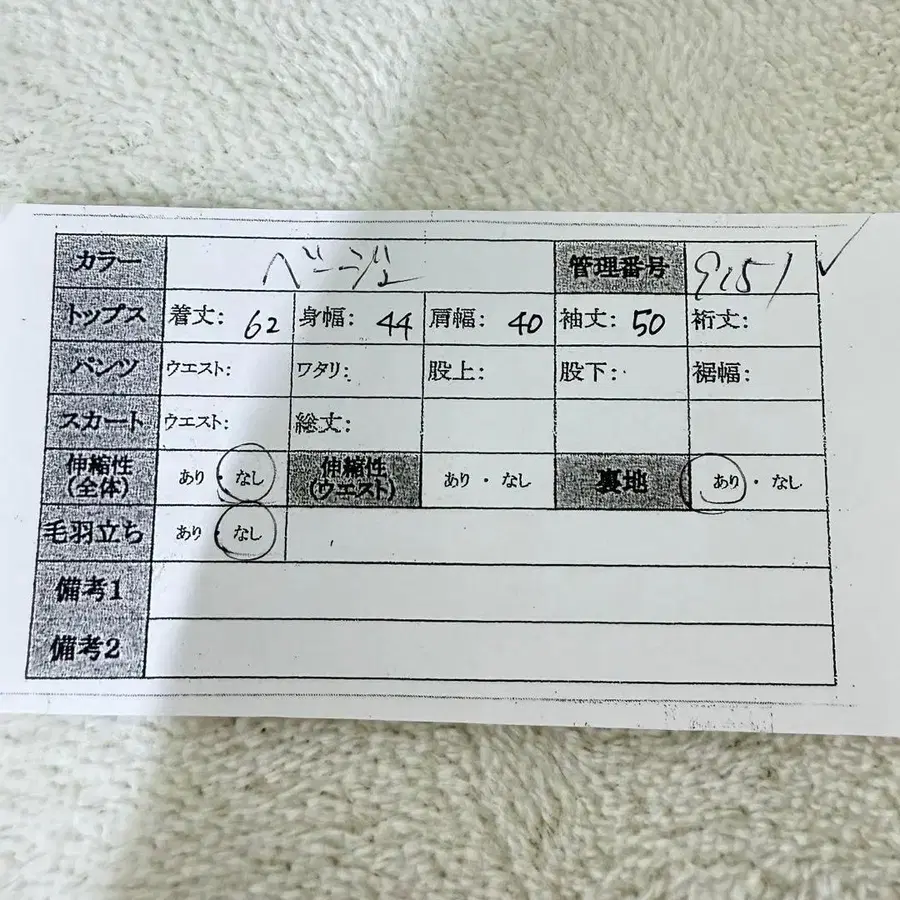 カラー ベージュ 管理番号 9151
トップス 着丈: 62 身幅: 44 肩幅: 40 袖丈: 50 裄丈:
パンツ ウエスト: ワタリ: 股上: 股下: 裾幅:
スカート ウエスト: 総丈:
伸縮性(全体) あり・なし 伸縮性(ウエスト) あり・なし 裏地 あり・なし
毛羽立ち あり・なし
備考1
備考2